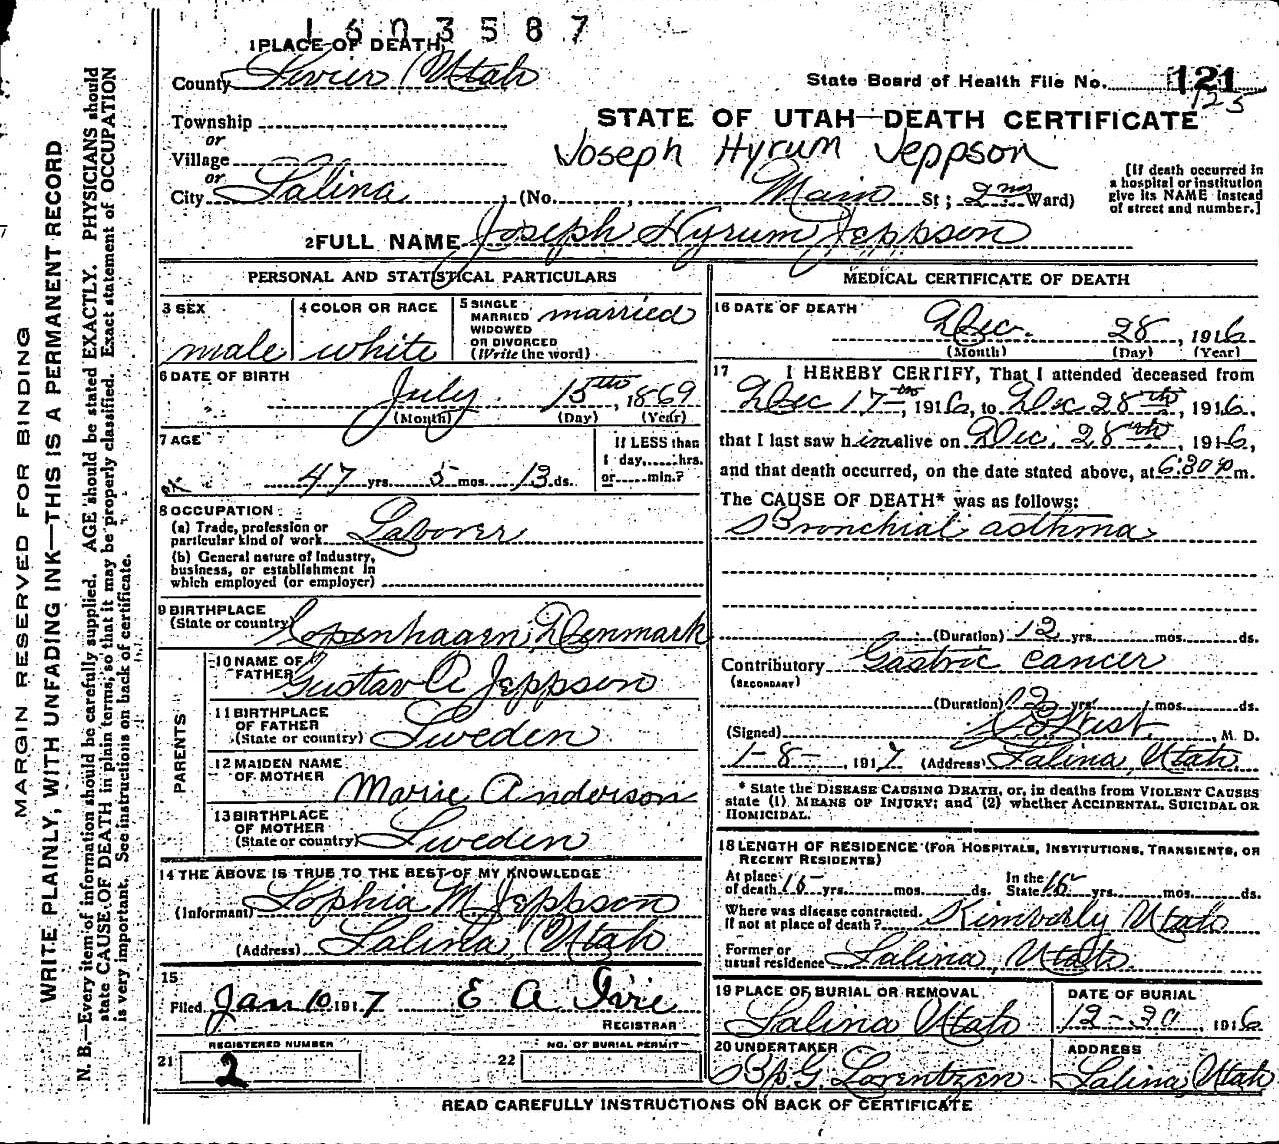 1603587
1 PLACE OF DEATH,
County Sevier, Utah
State Board of Health File No. 121
125
Township
or
Village
or
City Salina
STATE OF UTAH—DEATH CERTIFICATE
Joseph Hyrum Jeppson
(No. , Main St ; 2nd Ward)
[If death occurred in
a hospital or institution
give its NAME instead
of street and number.]
2 FULL NAME Joseph Hyrum Jeppson
PERSONAL AND STATISTICAL PARTICULARS
3 SEX
male
4 COLOR OR RACE
white
5 SINGLE
MARRIED
WIDOWED
OR DIVORCED
(Write the word)
married
6 DATE OF BIRTH
July 15th, 1869
(Month) (Day) (Year)
7 AGE
47 yrs. 5 mos. 13 ds.
If LESS than
1 day, hrs.
or min.?
8 OCCUPATION
(a) Trade, profession or
particular kind of work Laborer
(b) General nature of Industry,
business, or establishment in
which employed (or employer)
9 BIRTHPLACE
(State or country) Copenhagen, Denmark
PARENTS
10 NAME OF
FATHER Gustav A Jeppson
11 BIRTHPLACE
OF FATHER
(State or country) Sweden
12 MAIDEN NAME
OF MOTHER
Marie Anderson
13 BIRTHPLACE
OF MOTHER
(State or country) Sweden
14 THE ABOVE IS TRUE TO THE BEST OF MY KNOWLEDGE
(Informant) Sophia M Jeppson
(Address) Salina, Utah
15
Filed Jan 10 1917 E A Ivie
REGISTRAR
21 REGISTERED NUMBER
2
22 NO. OF BURIAL PERMIT
MEDICAL CERTIFICATE OF DEATH
16 DATE OF DEATH
Dec. 28, 1916
(Month) (Day) (Year)
17 I HEREBY CERTIFY, That I attended deceased from
Dec 17th, 1916, to Dec 28th, 1916,
that I last saw him alive on Dec. 28th, 1916,
and that death occurred, on the date stated above, at 6:30 p m.
The CAUSE OF DEATH* was as follows:
Bronchial asthma
(Duration) 12 yrs. mos. ds.
Contributory Gastric cancer
(SECONDARY)
(Duration) 2 yrs. mos. ds.
(Signed) West, M. D.
1-8-, 1917 (Address) Salina, Utah
* State the DISEASE CAUSING DEATH, or, in deaths from VIOLENT CAUSES
state (1) MEANS OF INJURY; and (2) whether ACCIDENTAL, SUICIDAL OR
HOMICIDAL.
18 LENGTH OF RESIDENCE (FOR HOSPITALS, INSTITUTIONS, TRANSIENTS, OR
RECENT RESIDENTS)
At place
of death 15 yrs. mos. ds.
In the
State 15 yrs. mos. ds.
Where was disease contracted,
if not at place of death? Kimberly Utah
Former or
usual residence Salina, Utah.
19 PLACE OF BURIAL OR REMOVAL
Salina Utah
DATE OF BURIAL
12-30, 1916
20 UNDERTAKER
Lorentzen
ADDRESS
Salina, Utah
READ CAREFULLY INSTRUCTIONS ON BACK OF CERTIFICATE
MARGIN RESERVED FOR BINDING
WRITE PLAINLY, WITH UNFADING INK—THIS IS A PERMANENT RECORD
N. B.—Every item of information should be carefully supplied. AGE should be stated EXACTLY. PHYSICIANS should
state CAUSE OF DEATH in plain terms, so that it may be properly classified. Exact statement of OCCUPATION
is very important. See instructions on back of certificate.